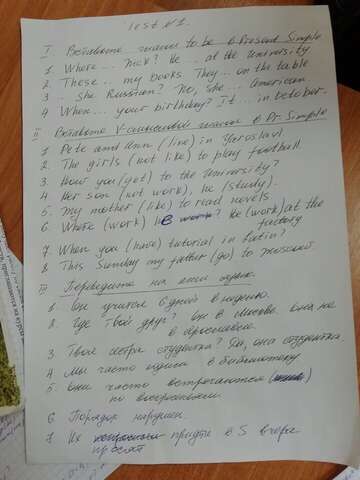 Test N1.
I Вставьте глагол to be в Present Simple
1. Where ... Nick? He ... at the University
2. These ... my books They ... on the table
3 ... She Russian? No, she ... American
4 When ... your birthday? It ... in october.
II Вставьте глагол в Pr. Simple
1 Pete and Ann (live) in Yaroslavl
2. The girls (not like) to play football.
3. How you (get) to the University?
4. Her son (not work), he (study).
5. My mother (like) to read novels
6. Where (work) he ? He (work) at the
factory
7. When you (have) tutorial in Latin?
8 This Sunday my father (go) to Moscow
III Переведите на англ язык
1. Он учится 6 дней в неделю.
2. Где твой друг? Он в Москве. Она не
в Ярославле
3 Твоя сестра студентка? Да, она студентка.
4 Мы часто ходим в библиотеку
5. Они часто встречаются
по воскресеньям.
6 Порядок нарушен.
7 Их прийти в 5 вечера
просят